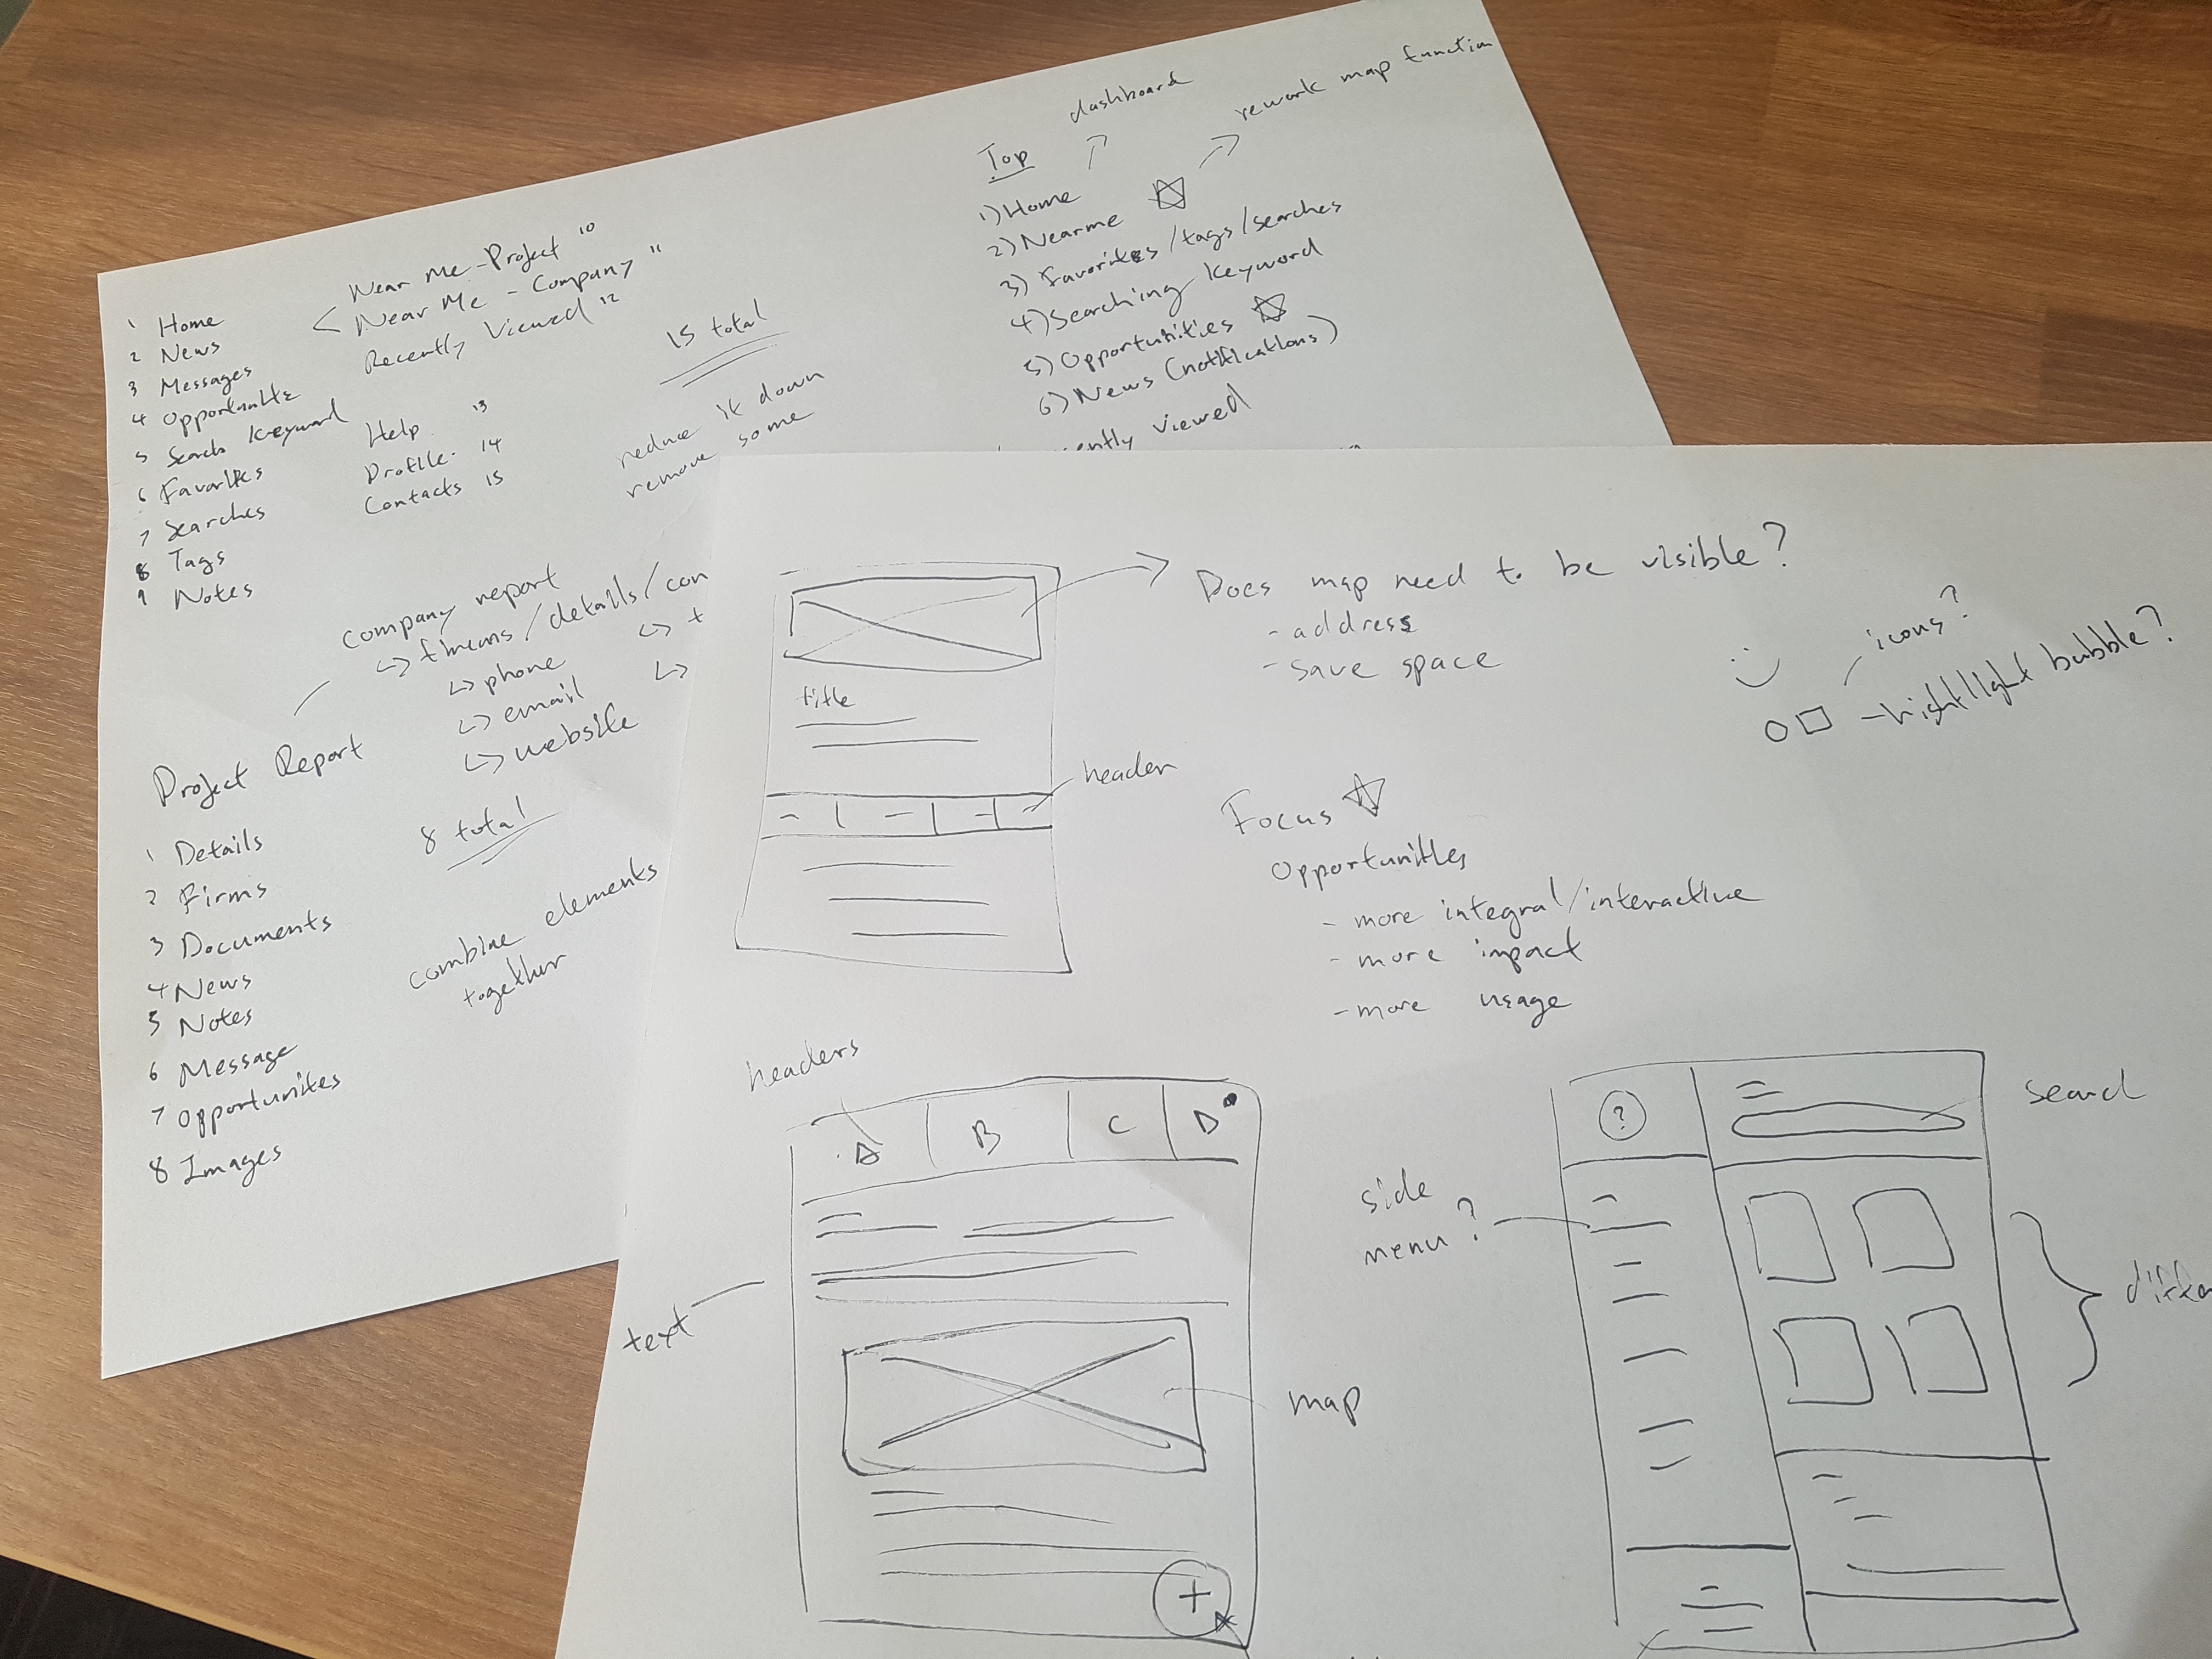 dashboard
rework map function
Top
1) Home
2) Nearme
3) Favorites/tags/searches
4) Searching keyword
5) Opportunities
6) News (notifications)
ently viewed
Near Me - Project 10
< Near Me - Company 11
Recently Viewed 12
15 total
reduce it down
remove some
1 Home
2 News
3 Messages
4 Opportunite
5 Search Keyword
6 Favorites
7 Searches
8 Tags
9 Notes
Help 13
Profile. 14
Contacts 15
company report
↳ /details/con
↳ phone
↳ email
↳ website
↳ t
↳
Project Report
8 total
combine elements
together
1 Details
2 Firms
3 Documents
4 News
5 Notes
6 Message
7 opportunites
8 Images
Does map need to be visible?
- address
- save space
title
header
icons?
- hightlight bubble?
Focus
Opportunities
- more integral/interactive
- more impact
- more usage
headers
A B C D
text
map
+
?
search
side
menu?